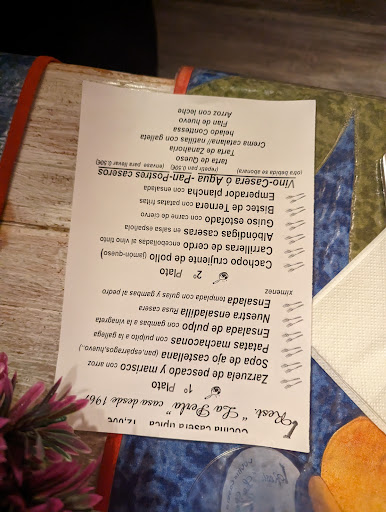 Cocina casera típica 12,00€
Rest. "La Perla" casa desde 196
1º Plato
Zarzuela de pescado y marisco con arroz
Sopa de ajo castellana (pan,espárragos,huevo,..)
Patatas machaconas con pulpito a la gallega
Ensalada de pulpo con gambas a la vinagreta
Nuestra ensaladilla Rusa casera
Ensalada templada con gulas y gambas al pedro
ximenez
2º Plato
Cachopo crujiente de pollo (jamon-queso)
Carrilleras de cerdo encebolladas al vino tinto
Albóndigas caseras en salsa española
Guiso estofado de carne con ciervo
Bistec de Ternera con patatas fritas
Emperador plancha con ensalada
Vino-Casera ó Agua -Pan-Postres caseros
(otra bebida se abonara) (repetir pan 0.50€) (envase para llevar 0.50€)
Tarta de Queso
Tarta de Zanahoria
Crema catalana/ natillas con galleta
helado Conttessa
Flan de huevo
Arroz con leche